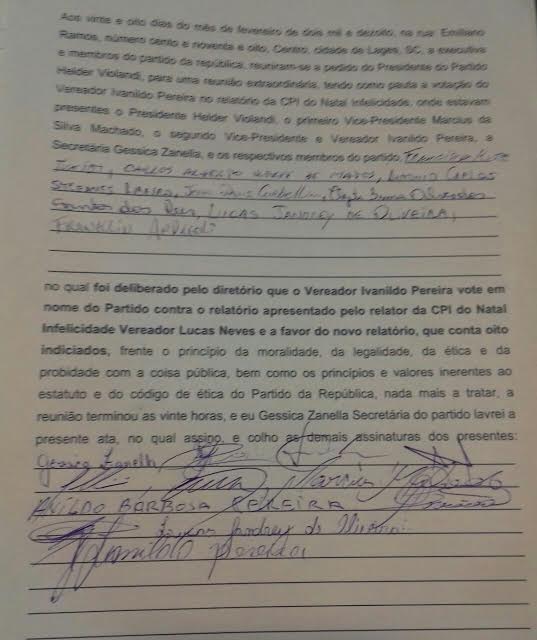 Aos vinte e oito dias do mês de fevereiro de dois mil e dezoito, na rua Emiliano
Ramos, número cento e noventa e oito, Centro, cidade de Lages, SC, a executiva
e membros do partido da república, reuniram-se a pedido do Presidente do Partido
Helder Violandi, para uma reunião extraordinária, tendo como pauta a votação do
Vereador Ivanildo Pereira no relatório da CPI do Natal Infelicidade, onde estavam
presentes o Presidente Helder Violandi, o primeiro Vice-Presidente Marcius da
Silva Machado, o segundo Vice-Presidente e Vereador Ivanildo Pereira, a
Secretária Gessica Zanella, e os respectivos membros do partido, Francisco
Junior, Carlos de Matos, Antonio Carlos
Santos dos Lucas Jandrey de Oliveira,
Franklin
no qual foi deliberado pelo diretório que o Vereador Ivanildo Pereira vote em
nome do Partido contra o relatório apresentado pelo relator da CPI do Natal
Infelicidade Vereador Lucas Neves e a favor do novo relatório, que conta oito
indiciados, frente o princípio da moralidade, da legalidade, da ética e da
probidade com a coisa pública, bem como os princípios e valores inerentes ao
estatuto e do código de ética do Partido da República, nada mais a tratar, a
reunião terminou as vinte horas, e eu Gessica Zanella Secretária do partido lavrei a
presente ata, no qual assino, e colho as demais assinaturas dos presentes:
Gessica Zanella,
Marcius Machado
ANILDO BARBOSA PEREIRA
Jandrey de Oliveira